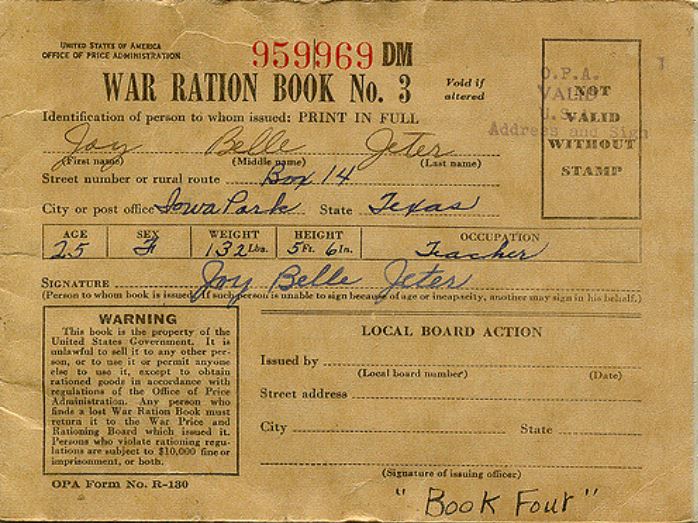 UNITED STATES OF AMERICA
OFFICE OF PRICE ADMINISTRATION
959969 DM
WAR RATION BOOK No. 3
Void if
altered
Identification of person to whom issued: PRINT IN FULL
Joy Belle Jeter
(First name) (Middle name) (Last name)
Street number or rural route Box 14
City or post office Iowa Park State Texas
AGE SEX WEIGHT HEIGHT OCCUPATION
25 F 132 Lbs. 5 Ft. 6 In. Teacher
SIGNATURE Joy Belle Jeter
(Person to whom book is issued. If such person is unable to sign because of age or incapacity, another may sign in his behalf.)
O.P.A.
VALID
U.S.
Address and Sign
NOT
VALID
WITHOUT
STAMP
WARNING
This book is the property of the
United States Government. It is
unlawful to sell it to any other per-
son, or to use it or permit anyone
else to use it, except to obtain
rationed goods in accordance with
regulations of the Office of Price
Administration. Any person who
finds a lost War Ration Book must
return it to the War Price and
Rationing Board which issued it.
Persons who violate rationing regu-
lations are subject to $10,000 fine or
imprisonment, or both.
OPA Form No. R-130
LOCAL BOARD ACTION
Issued by
(Local board number) (Date)
Street address
City State
(Signature of issuing officer)
"Book Four"